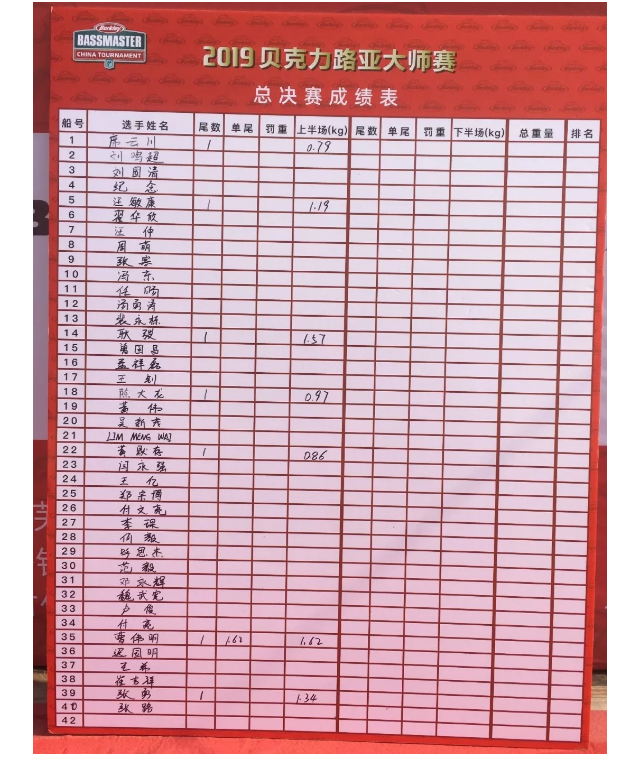 Berkley
BASSMASTER
CHINA TOURNAMENT
2019贝克力路亚大师赛
总决赛成绩表
船号 选手姓名 尾数 单尾 罚重 上半场(kg) 尾数 单尾 罚重 下半场(kg) 总重量 排名
1 席云川 1 0.79
2 刘鸣超
3 刘国清
4 纪念
5 汪敏康 1 1.19
6 翟华欣
7 汪仲
8 周萌
9 张
10 冯东
11 任
12 汤勇涛
13 裴永栋
14 耿强 1 1.57
15 国昌
16 孟祥磊
17 王钊
18 陈大龙 1 0.97
19 黄伟
20 吴新
21 LIM MENG WAI
22 黄 1 086
23 闫永强
24 王亿
25 郑宗博
26 付文亮
27 李
28 何毅
29 思杰
30 范毅
31 邓永辉
32 魏武
33 卢俊
34 付亮
35 曹伟明 1 1.62 1.62
36 国明
37 王
38 崔吉祥
39 张勇 1 1.34
40 张路
42